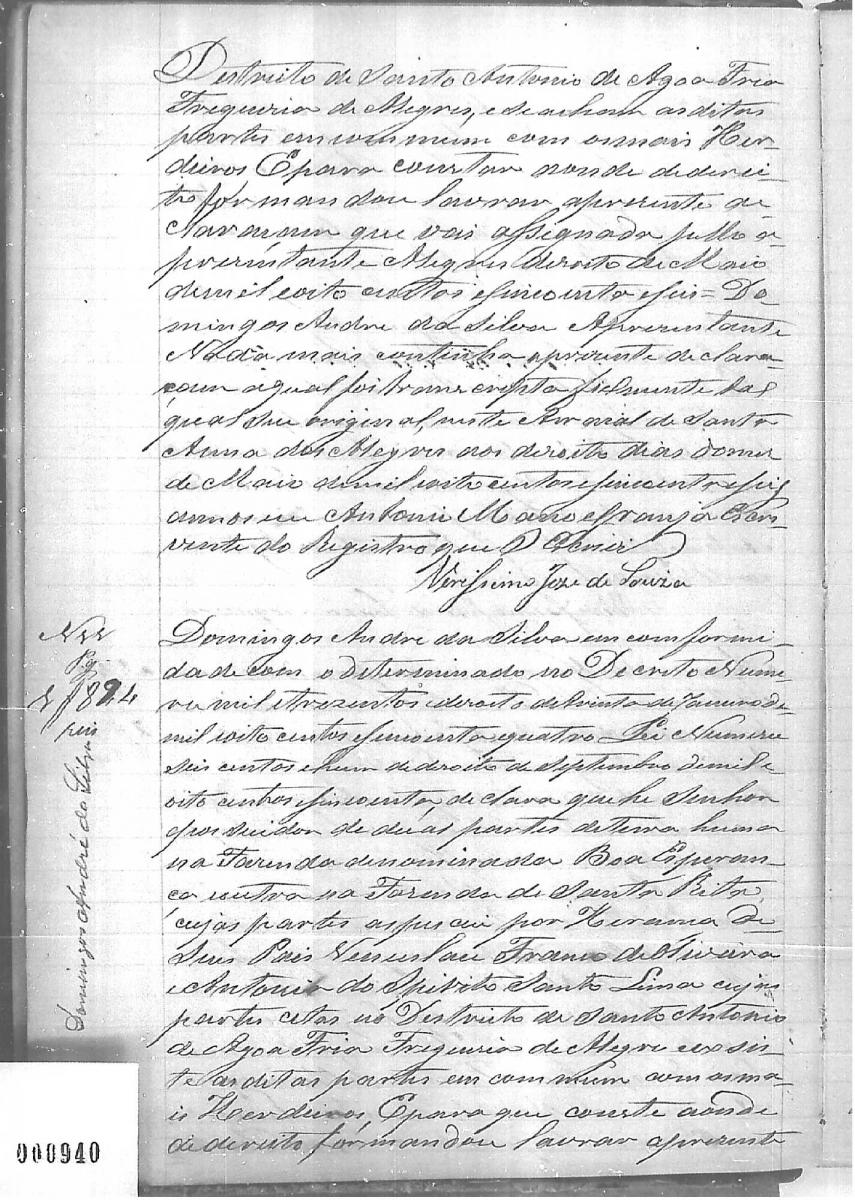 Destricto de Santo Antonio de Agoa Fria
Fregueria de Alegres, e de acham as ditas
partes em commum com os mais Her-
deiros E para constar aonde de derei-
to for mandou lavrar aprezente de-
claracam que vai assignada pello a-
prezintante Alegres deroito de Maio
de mil oito centos e sincoenta e seis = Do
mingos Andre da Silva Aprezentante
Nada mais continha aprezente de clara-
çam aqual foi trans cripta fielmente tal
qual seu original, neste Arraial de Santa
Anna dos Alegres aos deroito dias do mez
de Maio de mil oito centos e sincoenta e seis
annos eu Antonio Manoel França Escri-
vente do Registro que O Escrivi
Verissimo Joze de Souza
Domingos Andre da Silva em comformi-
dade com o determinado no Decreto Nume-
ro mil e trezentos e deroito de trinta de Janeiro de
mil oito centos e sincoenta e quatro Lei Numero
seis centos e hum de deroito de Septembro de mil e
oito centos e sincoenta, de clara que he Senhor
e possuidor de duas partes de terra huma
na Fazenda denominada Boa Esperan-
ça e outra na Fazenda de Santa Rita,
cujas partes as pussui por Herança de
Seus Pais Venceslau Franco de Oliveira
e Antonia do Spirito Santo Lima cujas
partes estas no Destricto de Santo Antonio
de Agoa Fria Fregueria de Alegre e exsis-
te as ditas partes em commum com os ma-
is Herdeiros, E para que conste aonde
de dereito for mandou lavrar aprezente
Pg.
Domingos André da Silva
000940